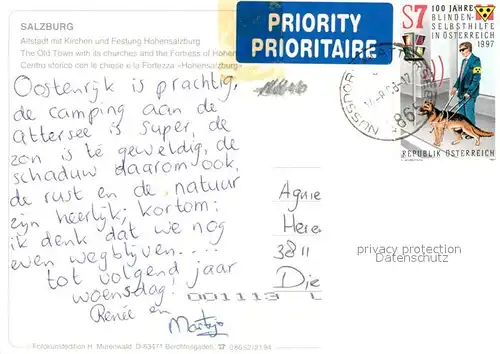 SALZBURG
Altstadt mit Kirchen und Festung Hohensalzburg
The Old Town with its churches and the Fortress of Hohen
Centro storico con le chiese e la Fortezza »Hohensalzburg«
PRIORITY
PRIORITAIRE
S7 100 JAHRE
BLINDEN-
SELBSTHILFE
IN ÖSTERREICH
1997
REPUBLIK ÖSTERREICH
NUSSDORF
865
Oostenrijk is prachtig,
de camping aan de
Attersee is super, de
zon is te geweldig, de
schaduw daarom ook,
de rust en de natuur
zijn heerlijk, kortom:
ik denk dat we nog
even wegblijven....
tot volgend jaar
woensdag!
Renée en
Martijn
Agnie
Heren
3811
Die
privacy protection
Datenschutz
001113 L
Fotokunstedition H. Mürenwald D-83471 Berchtesgaden, ☎ 08652/2194